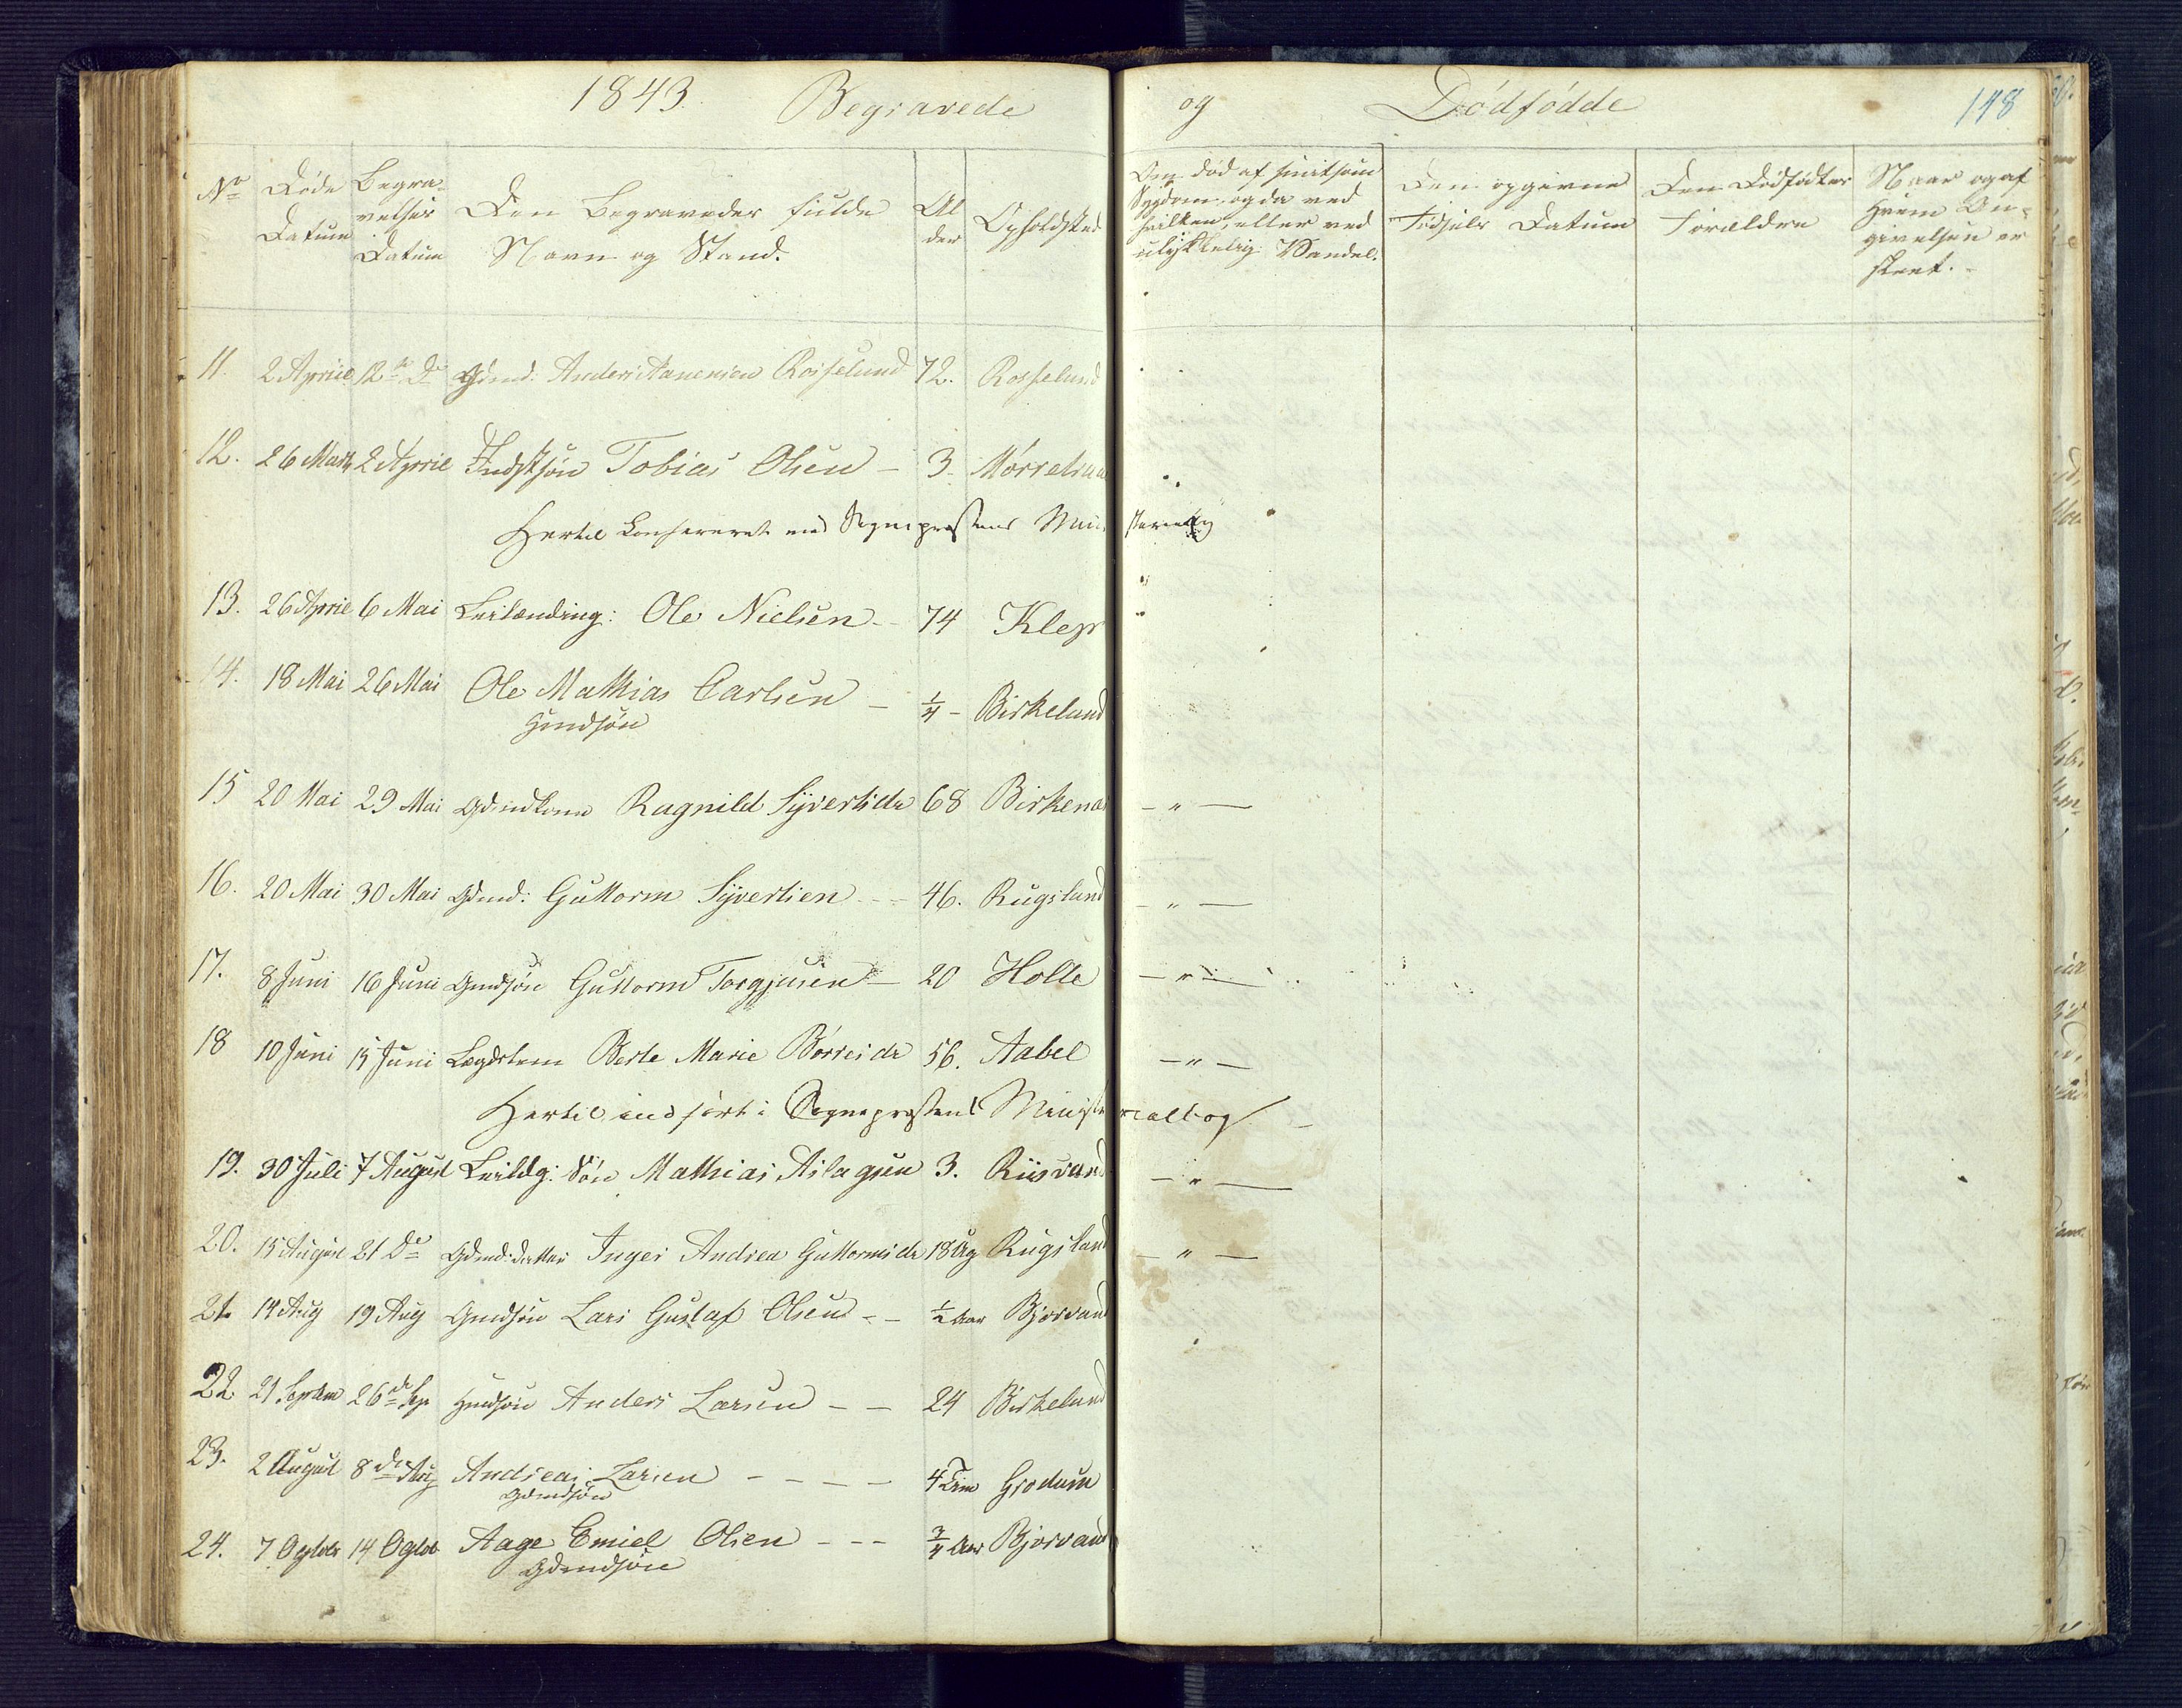 1843. Begravede og Dödfödde 148
No Døde Datum
Begravelses Datum
Den Begravedes fulde Navn og Stand.
Alder
Opholdsted
Om død af smitsom Sygdom, og da ved hvilken, eller ved ulykkelig Vandel.
Den opgivne Fødsels Datum
Den Dødfødtes Forældre
Naar og af Hvem Angivelsen er skeet.
11. 2 April 12te Do Gdmd. Anders Aanensen Rosselund 72. Rosselund
12. 26 Marts 2 April Indstsøn Tobias Olsen - 3. Mörretvan
Hertil Confereret med Sognepræstens Ministerialbog
13. 26 April 6 Mai Leilænding: Ole Nielsen - 74 Klep
14. 18 Mai 26 Mai Ole Mathias Carlsen - 1/4 - Birkeland
Gmdsön
15 20 Mai 29 Mai Gdmdkone Ragnild Syvertsdr 68 Birkenæs - " -
16. 20 Mai 30 Mai Gdmd: Guttorm Syvertsen - - 46. Rugsland - " -
17. 8 Juni 16 Juni Gmdsön Guttorm Torgjusen - 20 Holte - " -
18 10 Juni 15 Juni Lægdslem Berte Marie Börresdr 56. Aabel - " -
Hertil indført i Sognepræstens Ministerialbog
19. 30 Juli 7 August Leildg: Sön Mathias Aslagsen 3. Riisvand - " -
20. 15 August 21 De Gdmd: datter Inger Andrea Guttormsdr 18 Ug Rugsland - " -
21. 14 Aug 19 Aug Gmdsön Lars Gustaf Olsen - - 1/2 Aar Bjorvand
22 21 Septem 26de Sep Gmdsön Anders Larsen - - 24 Birkeland
23. 2 August 8de Aug Andreas Larsen - - - - 4 Grodum
Gdmdsön
24. 7 Ogtobr 14 Ogtob Aage Emiel Olsen - - - 3/4 Aar Bjorvand
Gdmdsön